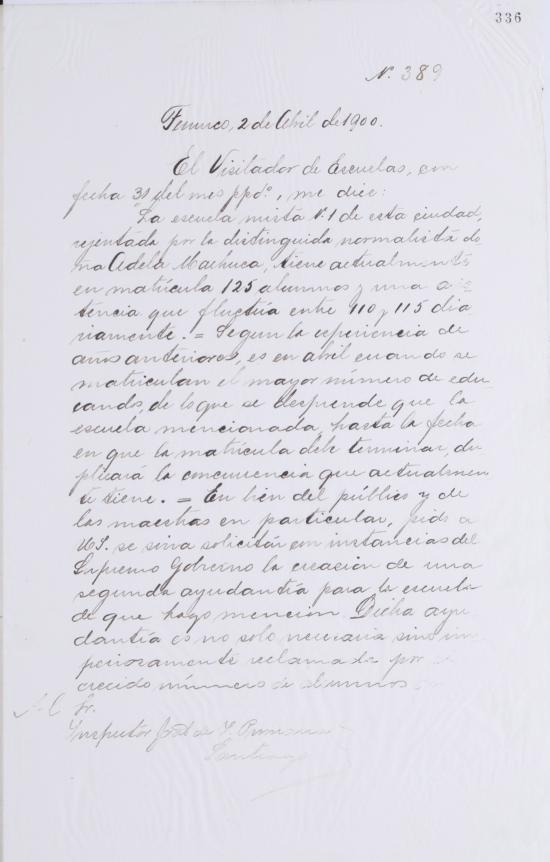 336
N. 389
Temuco, 2 de Abril de 1900.
El Visitador de Escuelas, con
fecha 31 del mes ppdo., me dice:
"La escuela mista N. 1 de esta ciudad,
rejentada por la distinguida normalista do
ña Adela Machuca, tiene actualmente
en matrícula 125 alumnos y una a
tencia que fluctúa entre 110 y 115 dia
riamente. = Segun la esperiencia de
años anteriores, es en abril cuando se
matriculan el mayor número de edu
candos, de lo que se desprende que la
escuela mencionada, hasta la fecha
en que la matrícula debe terminar, du
plicará la concurrencia que actualmen
te tiene. = En bien del público y de
las maestras en particular, pido a
US. se sirva solicitar con instancias del
Supremo Gobierno la creacion de una
segunda ayudantía para la escuela
de que hago mencion. Dicha ayu
dantía es no solo necesaria sino im
periosamente reclamada por
crecido número de alumnos
Al Sr.
Inspector Jral de I. Primaria
Santiago